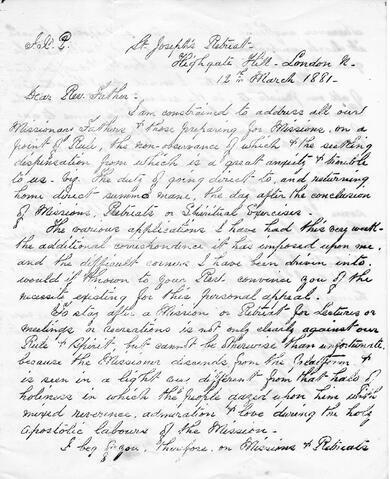 J.X.P. St. Joseph's Retreat -
Highgate Hill - London N.
12th March 1881 -
Dear Rev. Father -
I am constrained to address all our
Missionary Fathers & those preparing for Missions, on a
point of Rule, the non-observance of which & the seeking
dispensation from which is a great anxiety & trouble
to us - by. The duty of going direct to, and returning
home direct summo mane, the day after the conclusion
of Missions, Retreats or Spiritual Exercises -
The various applications I have had this very week -
the additional correspondence it has imposed upon me,
and the difficult corners I have been driven into,
would if known to your Revd. convince you of the
necessity existing for this personal appeal -
To stay after a Mission or Retreat for Lectures or
meetings or recreations is not only clearly against our
Rule & Spirit, but cannot be otherwise than unfortunate,
because the Missioner descends from the Platform &
is seen in a light different from that halo of
holiness in which the people gazed upon him with
mixed reverence, admiration & love during the holy
Apostolic labours of the Mission -
I beg you, therefore, on Missions & Retreats